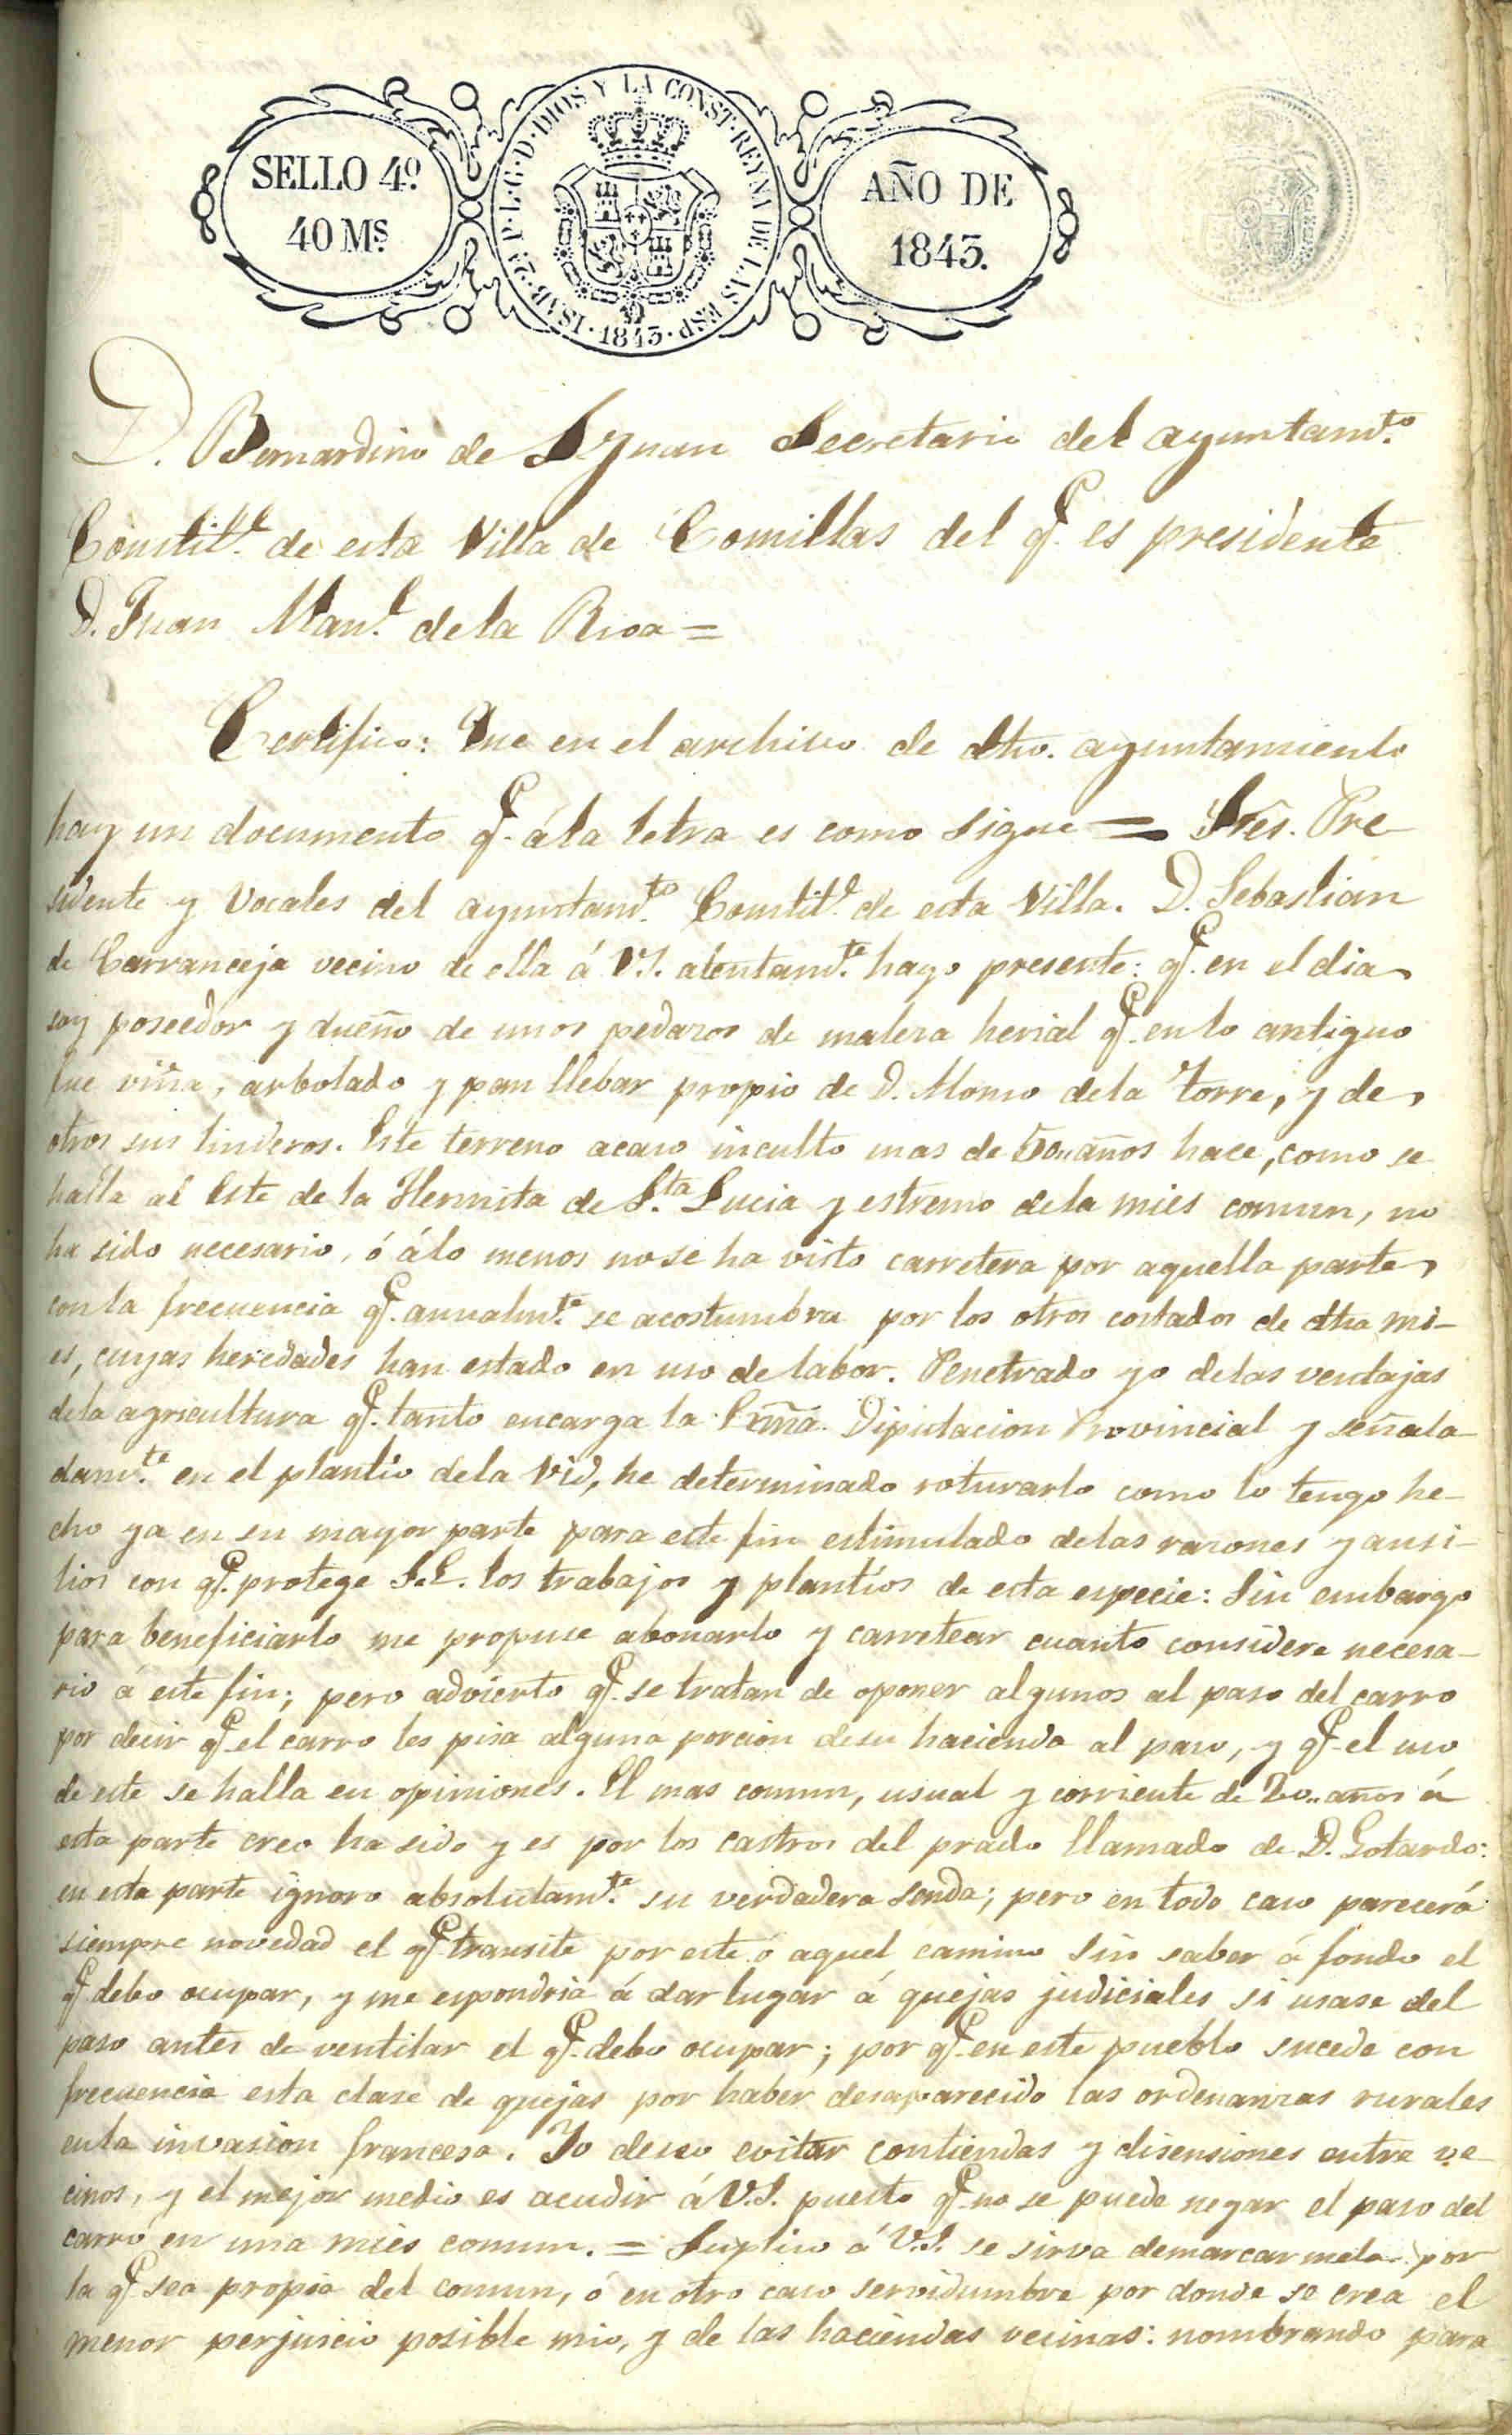 SELLO 4º
40 Ms
ISAB·2ª P·L·G·D·DIOS Y LA CONST·REYNA DE LAS ESP·1843·
AÑO DE
1843.
D. Bernardino de S. Juan Secretario del ayuntamto
Constitl de esta Villa de Comillas del q. es presidente
D. Juan Manl de la Riva =
Certifico: Que en el archivo de dho. ayuntamiento
hay un documento q. á la letra es como sigue = Sres. Pre
sidente y Vocales del ayuntamto Constitl de esta Villa. D. Sebastian
de Carranceja vecino de ella á V.S. atentamte hago presente: q. en el dia
soy poseedor y dueño de unos pedazos de maleza herial q. en lo antiguo
fue viña, arbolado y pan llebar propio de D. Alonso de la Torre, y de
otros sus linderos. Este terreno acaso inculto mas de 50,, años hace, como se
halla al Este de la Hermita de Sta Lucia y estremo de la mies comun, no
ha sido necesario, ó á lo menos no se ha visto carretera por aquella parte
con la frecuencia q. anualmte se acostumbra por los otros costados de dha mi-
es, cuyas heredades han estado en uso de labor. Penetrado yo de las ventajas
de la agricultura q. tanto encarga la Exma. Diputacion Provincial y señala-
damte en el plantio de la Vid, he determinado roturarlo como lo tengo he-
cho ya en su mayor parte para este fin estimulado de las razones y ausi-
lios con q. protege S.E. los trabajos y plantíos de esta especie: Sin embargo
para beneficiarlo me propuse abonarlo y carretear cuanto considere necesa-
rio á este fin; pero advierto q. se tratan de oponer algunos al paso del carro
por decir q. el carro les pisa alguna porcion de su hacienda al paso, y q. el uso
de este se halla en opiniones. El mas comun, usual y corriente de 20,, años á
esta parte creo ha sido y es por los castros del prado llamado de D. Gotardo:
en esta parte ignoro absolutamte su verdadera senda; pero en todo caso parecerá
siempre novedad el q. transite por este ó aquel camino sin saber á fondo el
q. debo ocupar, y me espondria á dar lugar á quejas judiciales si usase del
paso antes de ventilar el q. debo ocupar; por q. en este pueblo sucede con
frecuencia esta clase de quejas por haber desaparecido las ordenanzas rurales
en la invasion francesa. Yo deseo evitar contiendas y disensiones entre ve-
cinos, y el mejor medio es acudir á V.S. puesto q. no se puede negar el paso del
carro en una mies comun. = Suplico á V.S. se sirva demarcarmela por
la q. sea propia del comun, ó en otro caso servidumbre por donde se crea el
menor perjuicio posible mio, y de las haciendas vecinas: nombrando para